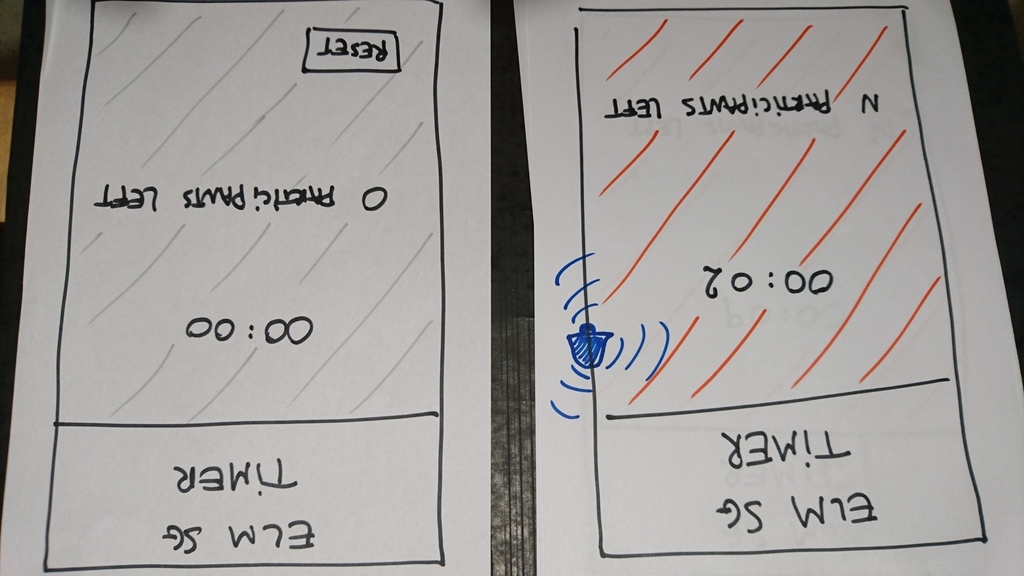 ELM SG
TiMER
00:02
N PARTiCiPANTS LEFT
ELM SG
TiMER
00:00
0 PARTiCiPANTS LEFT
RESET